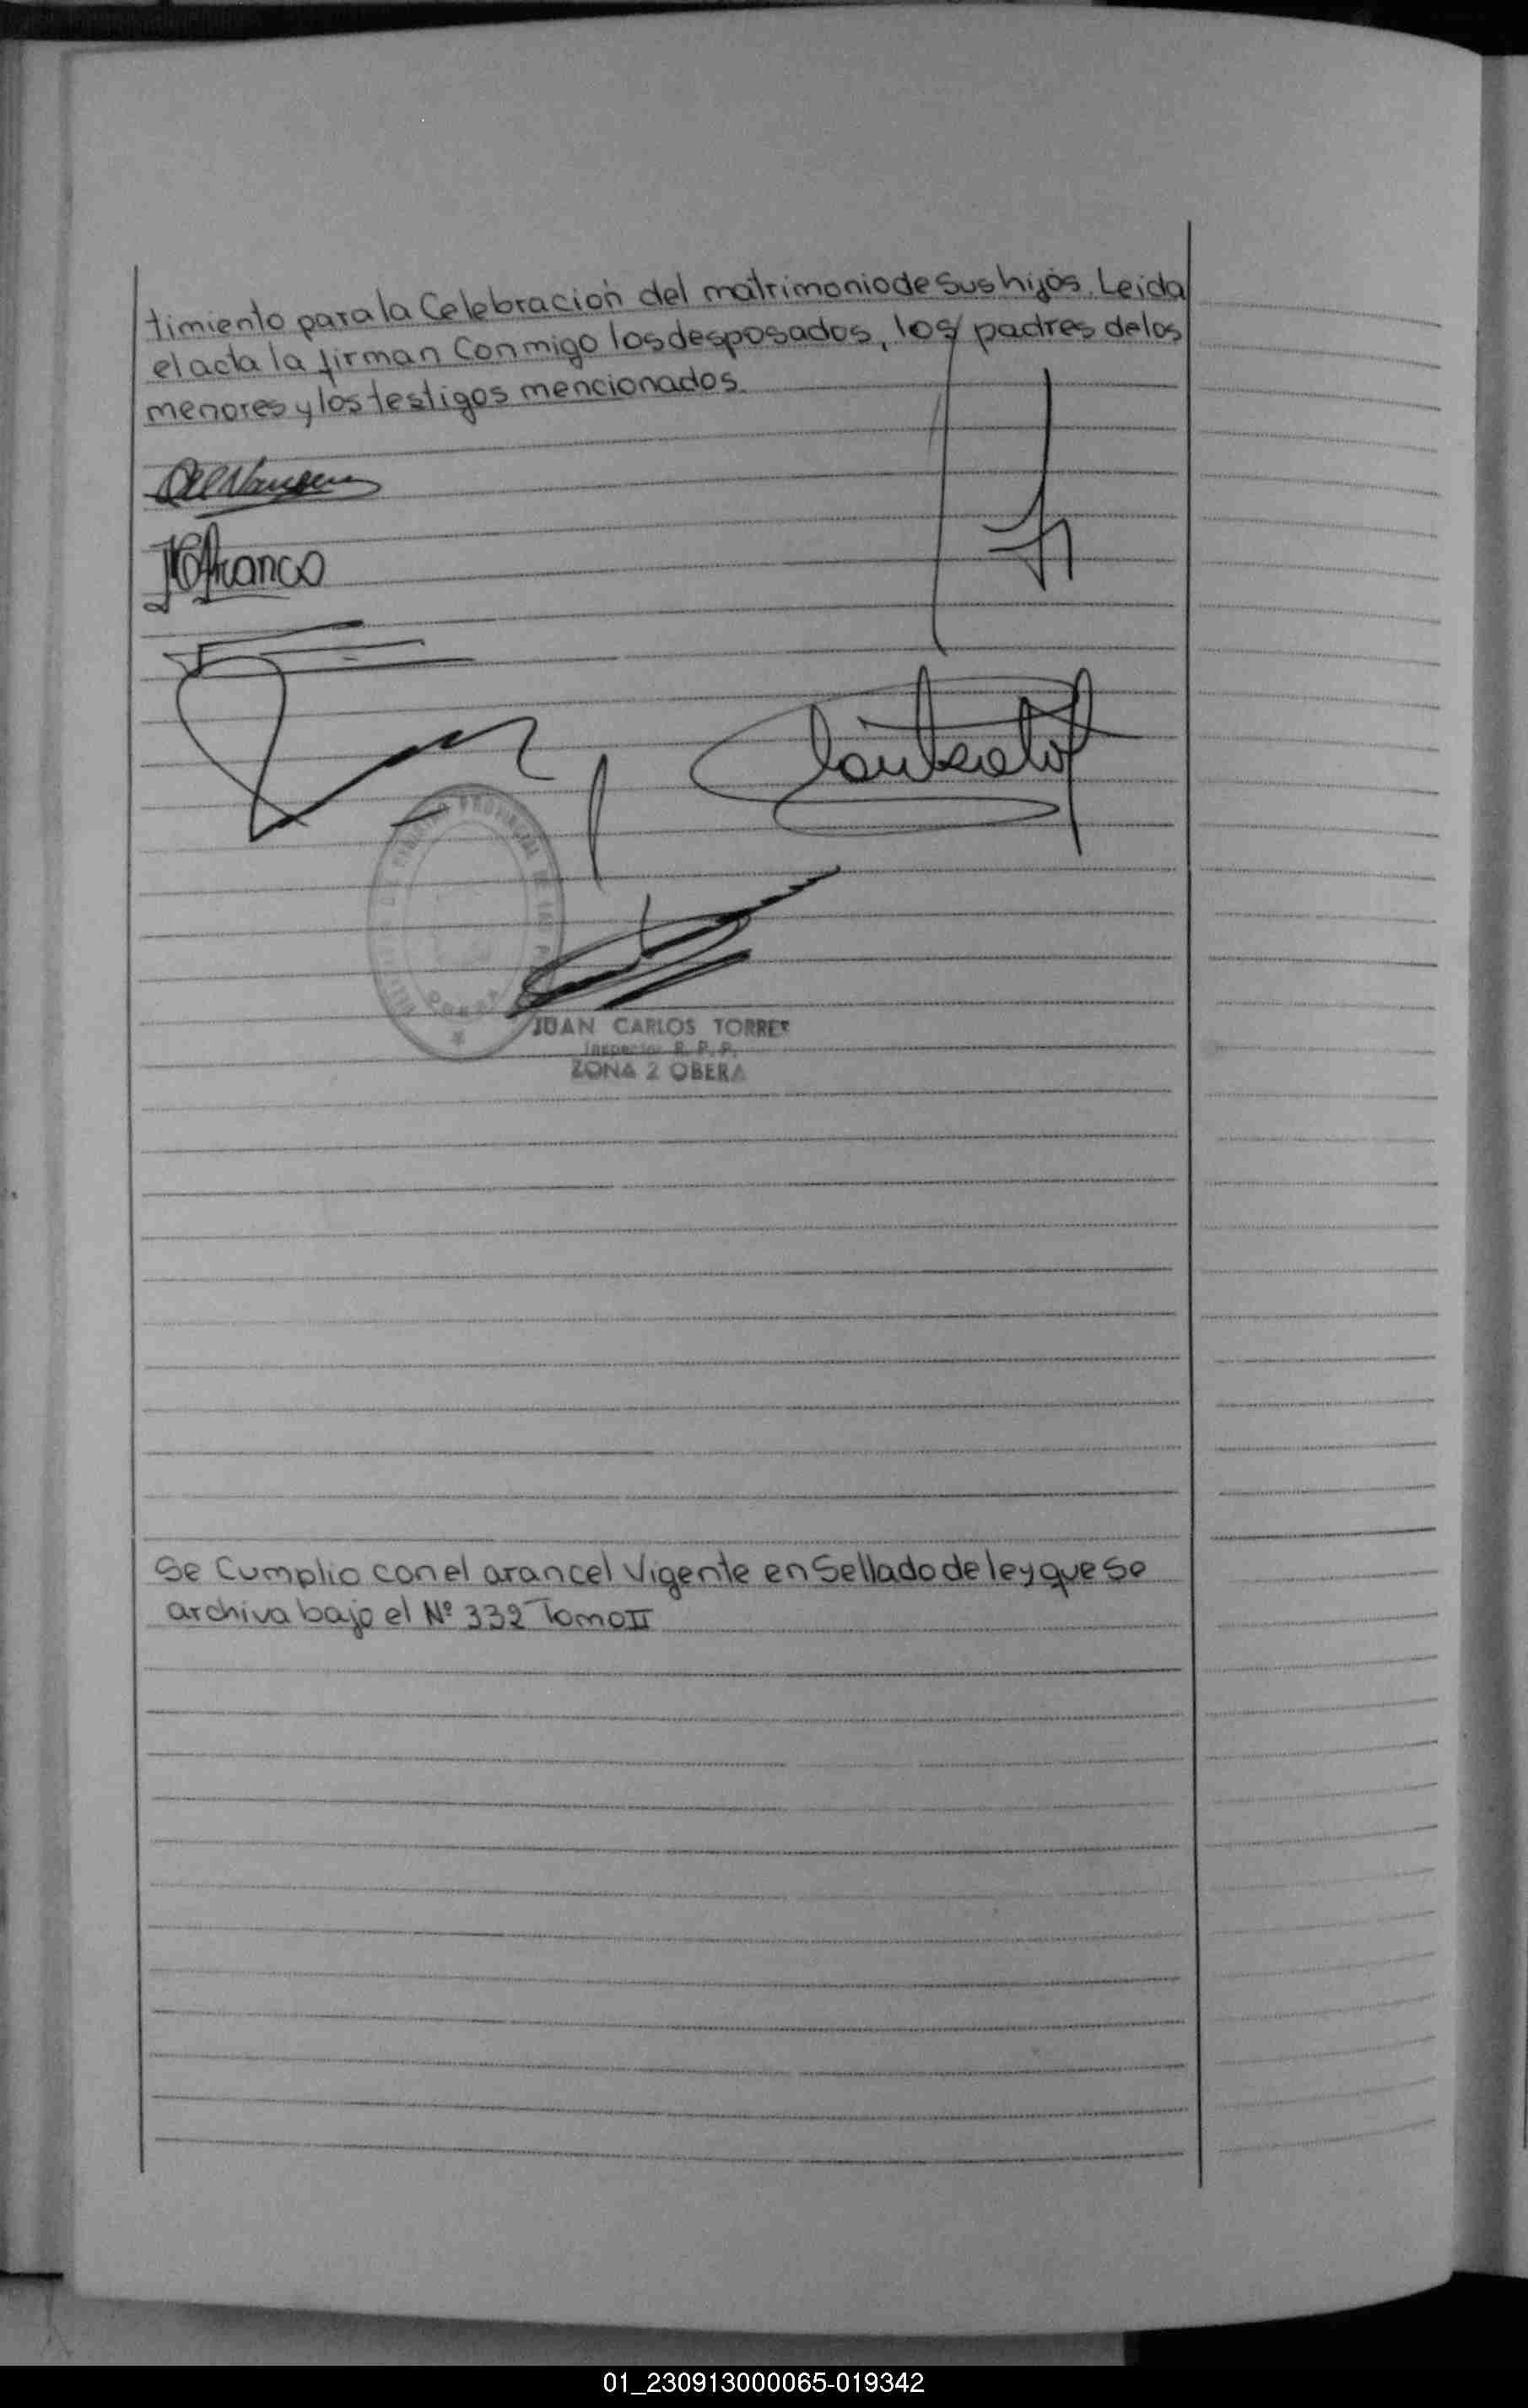 timiento para la Celebración del matrimonio de Sus hijos. Leida
el acta la firman Conmigo los desposados, los padres de los
menores y los testigos mencionados.
Franco
JUAN CARLOS TORRES
Inspector R. P. P.
ZONA 2 OBERA
Se Cumplio con el arancel Vigente en Sellado de ley que Se
archiva bajo el Nº 332 Tomo II
01_230913000065-019342